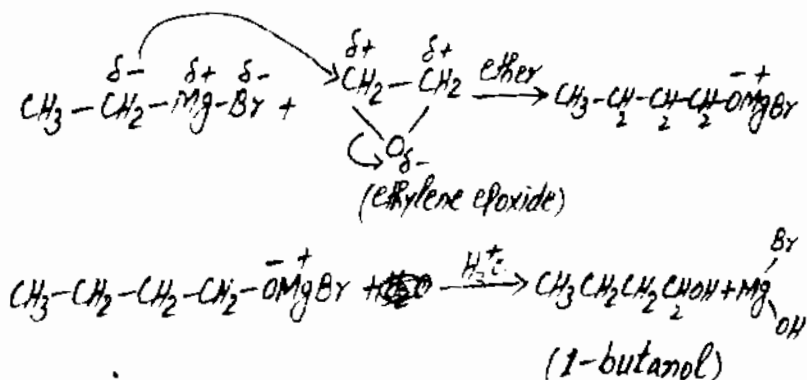 δ- δ+ δ- δ+ δ+
CH3-CH2-Mg-Br + CH2-CH2 ether CH3-CH2-CH2-CH2-OMgBr
- +
O δ-
(ethylene epoxide)
- + Br
CH3-CH2-CH2-CH2-OMgBr + H3+O CH3CH2CH2CH2OH + Mg
OH
(1-butanol)